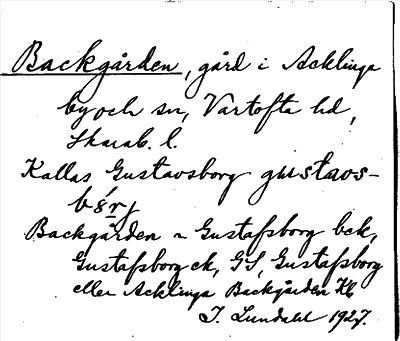 Backgården, gård i Acklinga
by och sn, Vartofta hd,
Skarab. l.
Kallas Gustavsborg gustavs-
Backgården ~ Gustafsborg bck,
Gustafsborg ck, GS, Gustafsborg
eller Acklinga Backgården Hk
I. Lundahl 1927.